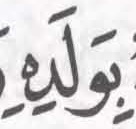 بِوَلَدِهِۦ